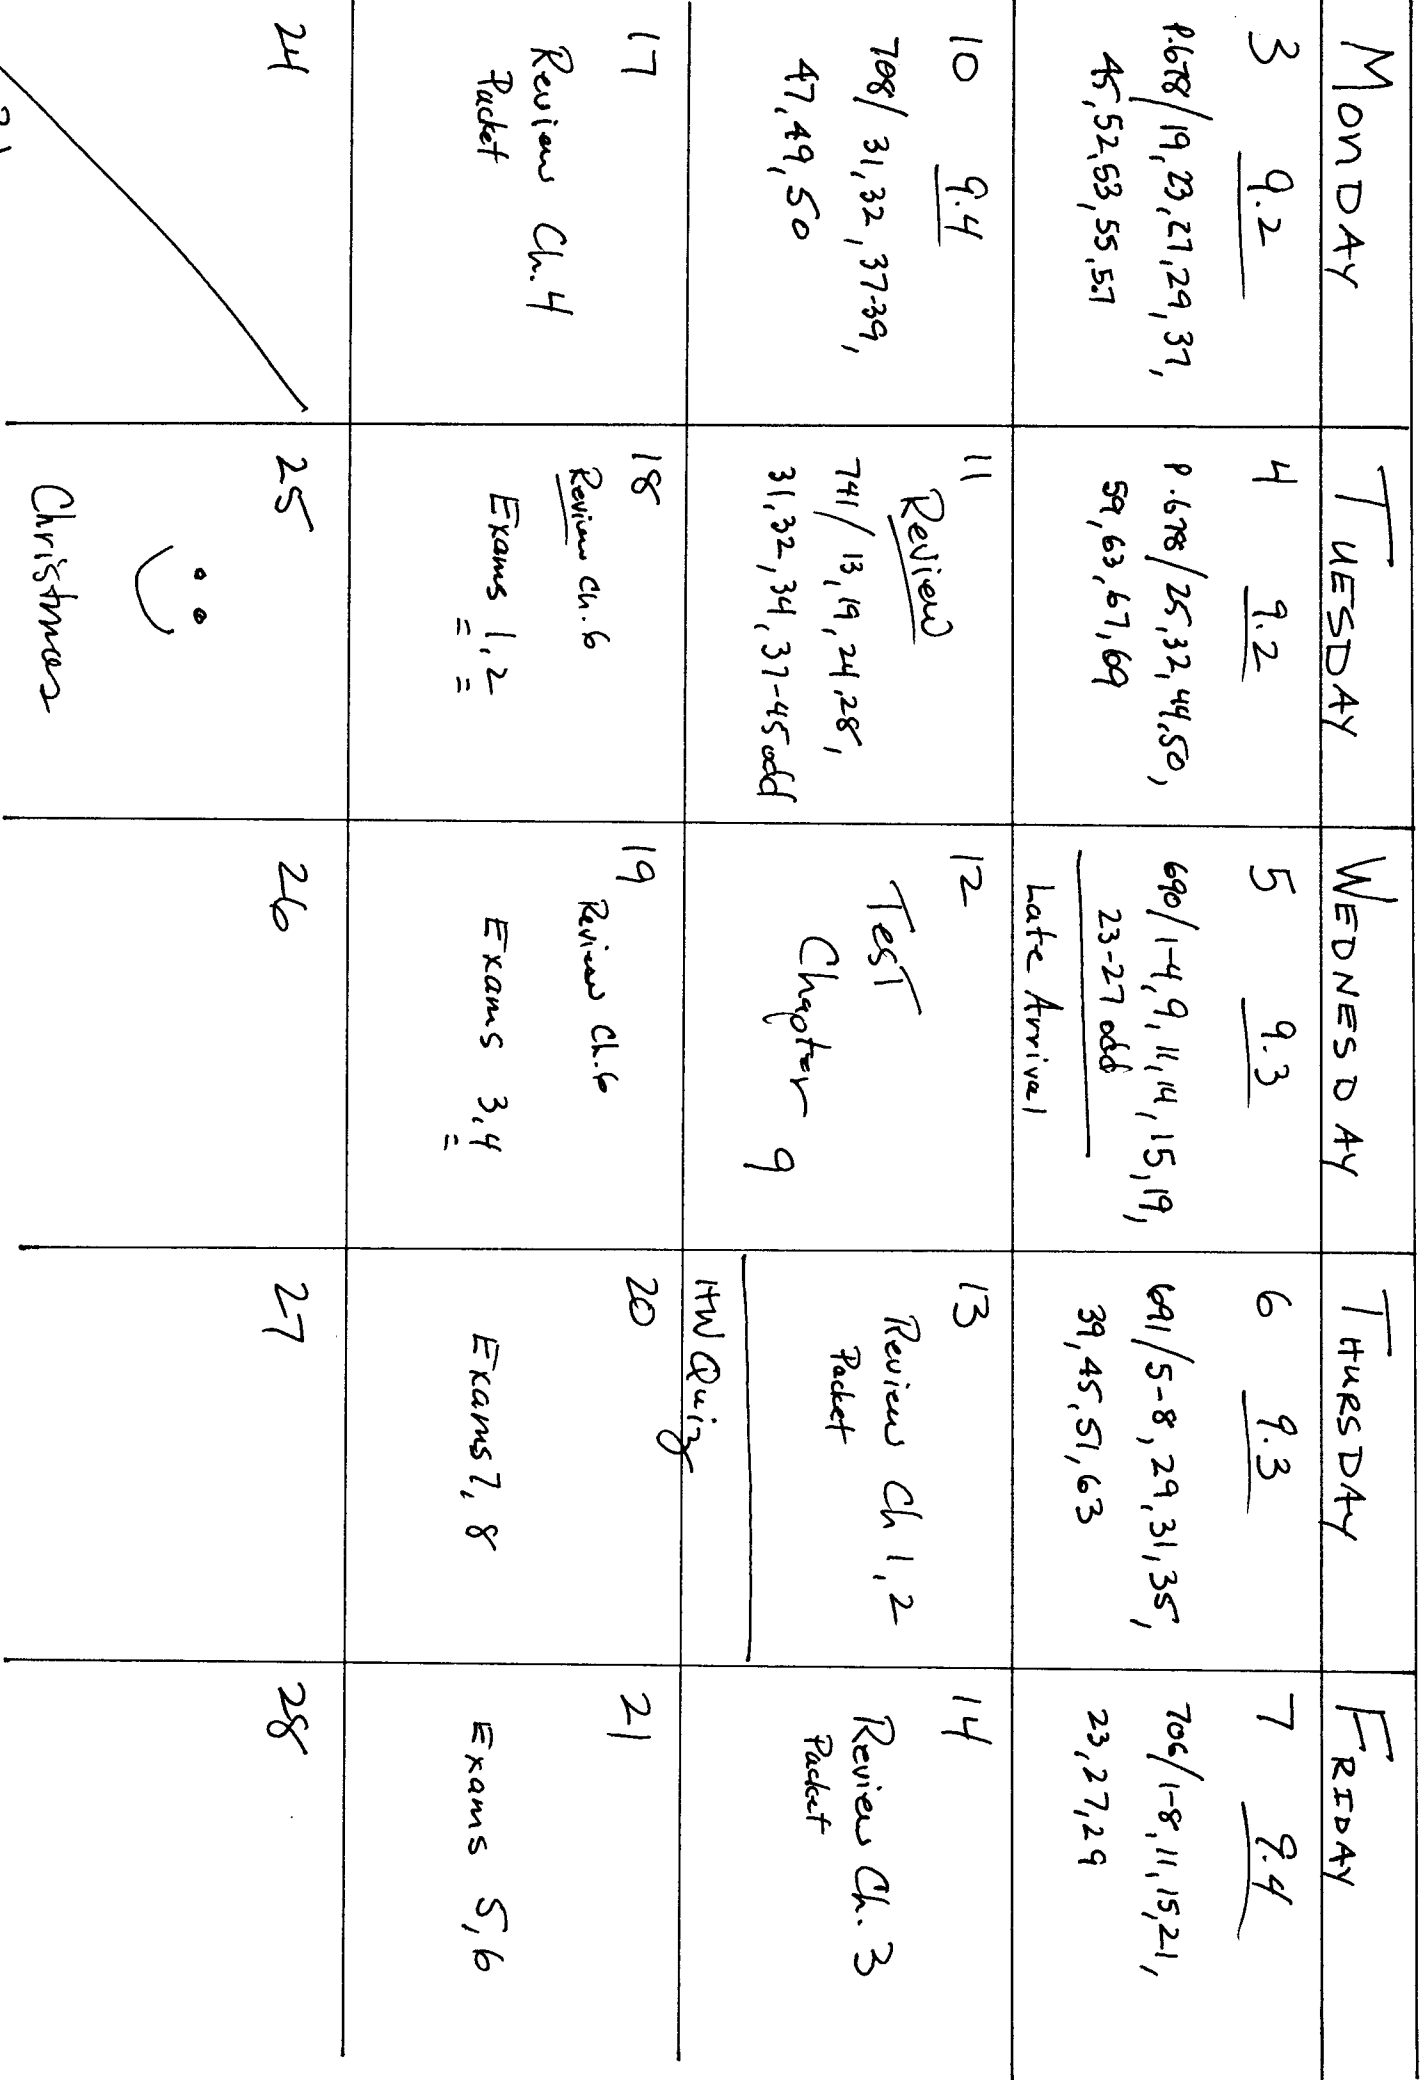 MONDAY
TUESDAY
WEDNESDAY
THURSDAY
FRIDAY
3 9.2
P.678/19,23,27,29,37,
45,52,53,55,57
4 9.2
P.678/25,32,44,50,
59,63,67,69
5 9.3
690/1-4,9,11,14,15,19,
23-27 odd
Late Arrival
6 9.3
691/5-8,29,31,35,
39,45,51,63
7 9.4
706/1-8,11,15,21,
23,27,29
10 9.4
708/31,32,37-39,
47,49,50
11
Review
741/13,19,24,28,
31,32,34,37-45 odd
12
Test
Chapter 9
13
Review Ch 1,2
Packet
HW Quiz
14
Review Ch. 3
Packet
17
Review Ch. 4
Packet
18
Review Ch. 6
Exams 1,2
19
Review Ch. 6
Exams 3,4
20
Exams 7,8
21
Exams 5,6
24
25
Christmas
26
27
28